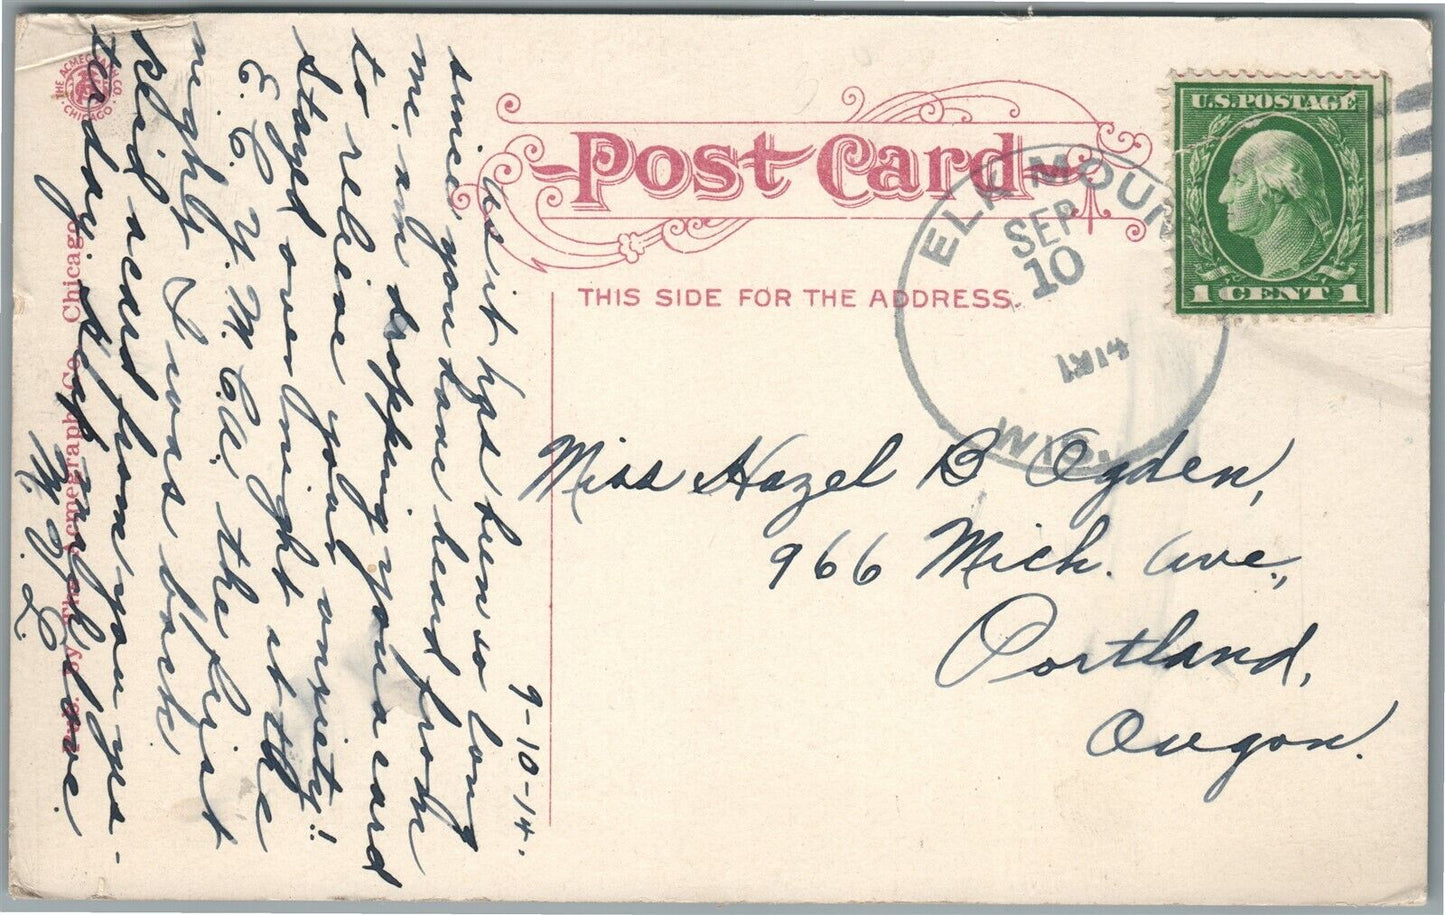 THE ACMEGRAPH CO.
CHICAGO
Post Card
THIS SIDE FOR THE ADDRESS.
U.S. POSTAGE
1 CENT 1
ELK MOUN
SEP
10
1914
WIS.
Pub. by The Acmegraph Co. Chicago
9-10-14.
As it has been so long
since you have heard from
me, am dropping you a card
to relieve your anxiety!!
Stayed over night at the
E. C. Y. M. C. A. the first
night I was back
Rec'd card from you yes-
terday.
M. J. L.
Miss Hazel B Ogden,
966 Mich. Ave.,
Portland,
Oregon.